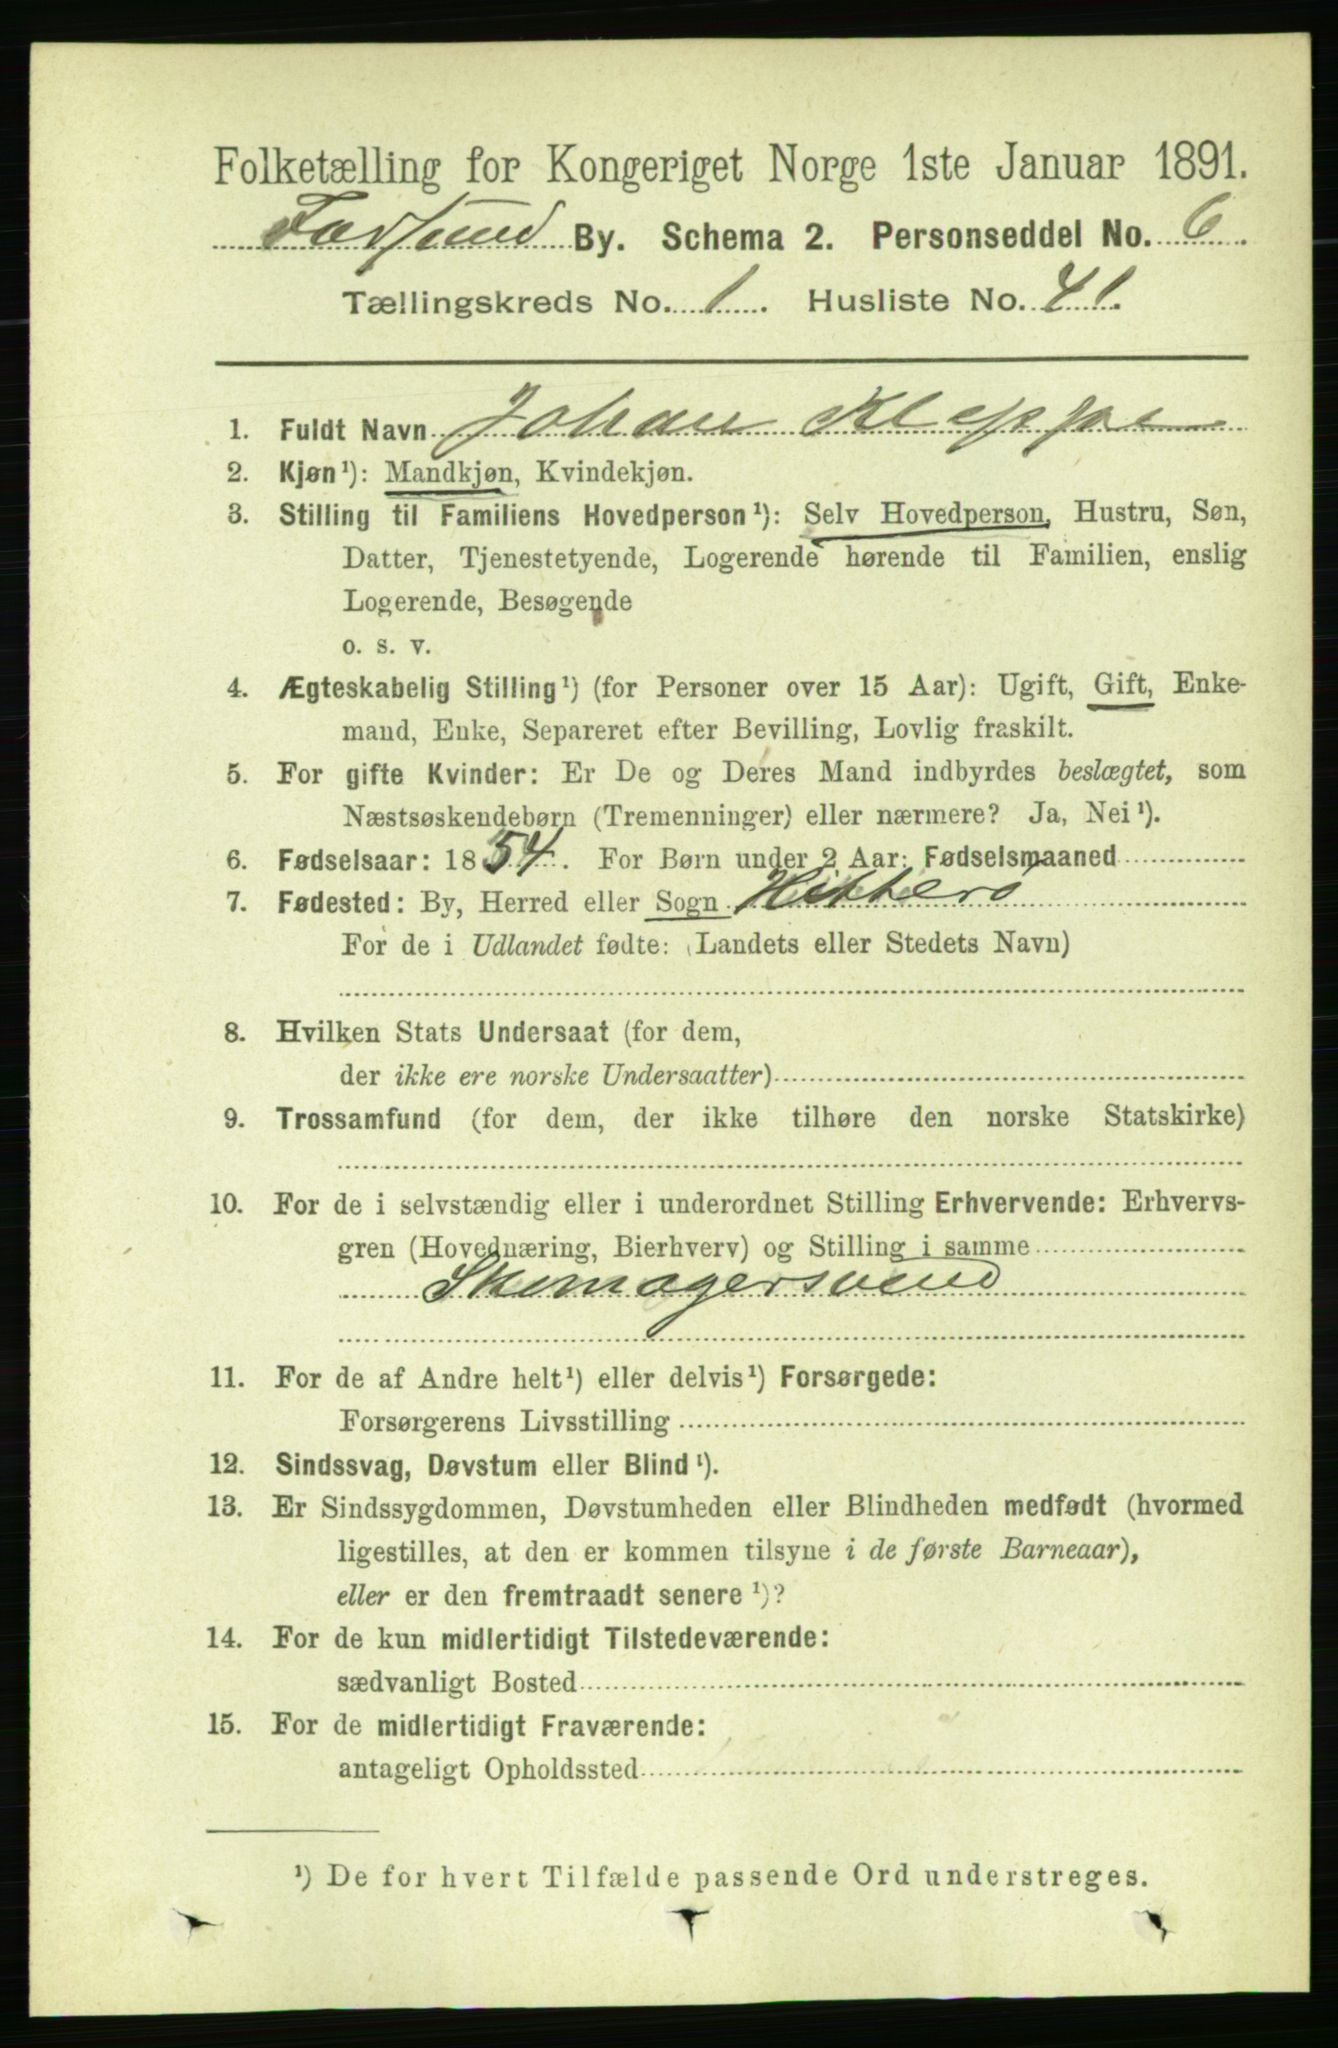 Folketælling for Kongeriget Norge 1ste Januar 1891.
Farsund By. Schema 2. Personseddel No. 6.
Tællingskreds No. 1. Husliste No. 41.
1. Fuldt Navn Johan
2. Kjøn¹): Mandkjøn, Kvindekjøn.
3. Stilling til Familiens Hovedperson¹): Selv Hovedperson, Hustru, Søn,
Datter, Tjenestetyende, Logerende hørende til Familien, enslig
Logerende, Besøgende
o. s. v.
4. Ægteskabelig Stilling¹) (for Personer over 15 Aar): Ugift, Gift, Enke-
mand, Enke, Separeret efter Bevilling, Lovlig fraskilt.
5. For gifte Kvinder: Er De og Deres Mand indbyrdes beslægtet, som
Næstsøskendebørn (Tremenninger) eller nærmere? Ja, Nei¹).
6. Fødselsaar: 1854. For Børn under 2 Aar: Fødselsmaaned
7. Fødested: By, Herred eller Sogn Hitterø
For de i Udlandet fødte: (Landets eller Stedets Navn)
8. Hvilken Stats Undersaat (for dem,
der ikke ere norske Undersaatter)
9. Trossamfund (for dem, der ikke tilhøre den norske Statskirke)
10. For de i selvstændig eller i underordnet Stilling Erhvervende: Erhvervs-
gren (Hovednæring, Bierhverv) og Stilling i samme
Skomagersvend
11. For de af Andre helt¹) eller delvis¹) Forsørgede:
Forsørgerens Livsstilling
12. Sindssvag, Døvstum eller Blind¹).
13. Er Sindssygdommen, Døvstumheden eller Blindheden medfødt (hvormed
ligestilles, at den er kommen tilsyne i de første Barneaar),
eller er den fremtraadt senere¹)?
14. For de kun midlertidigt Tilstedeværende:
sædvanligt Bosted
15. For de midlertidigt Fraværende:
antageligt Opholdssted
¹) De for hvert Tilfælde passende Ord understreges.